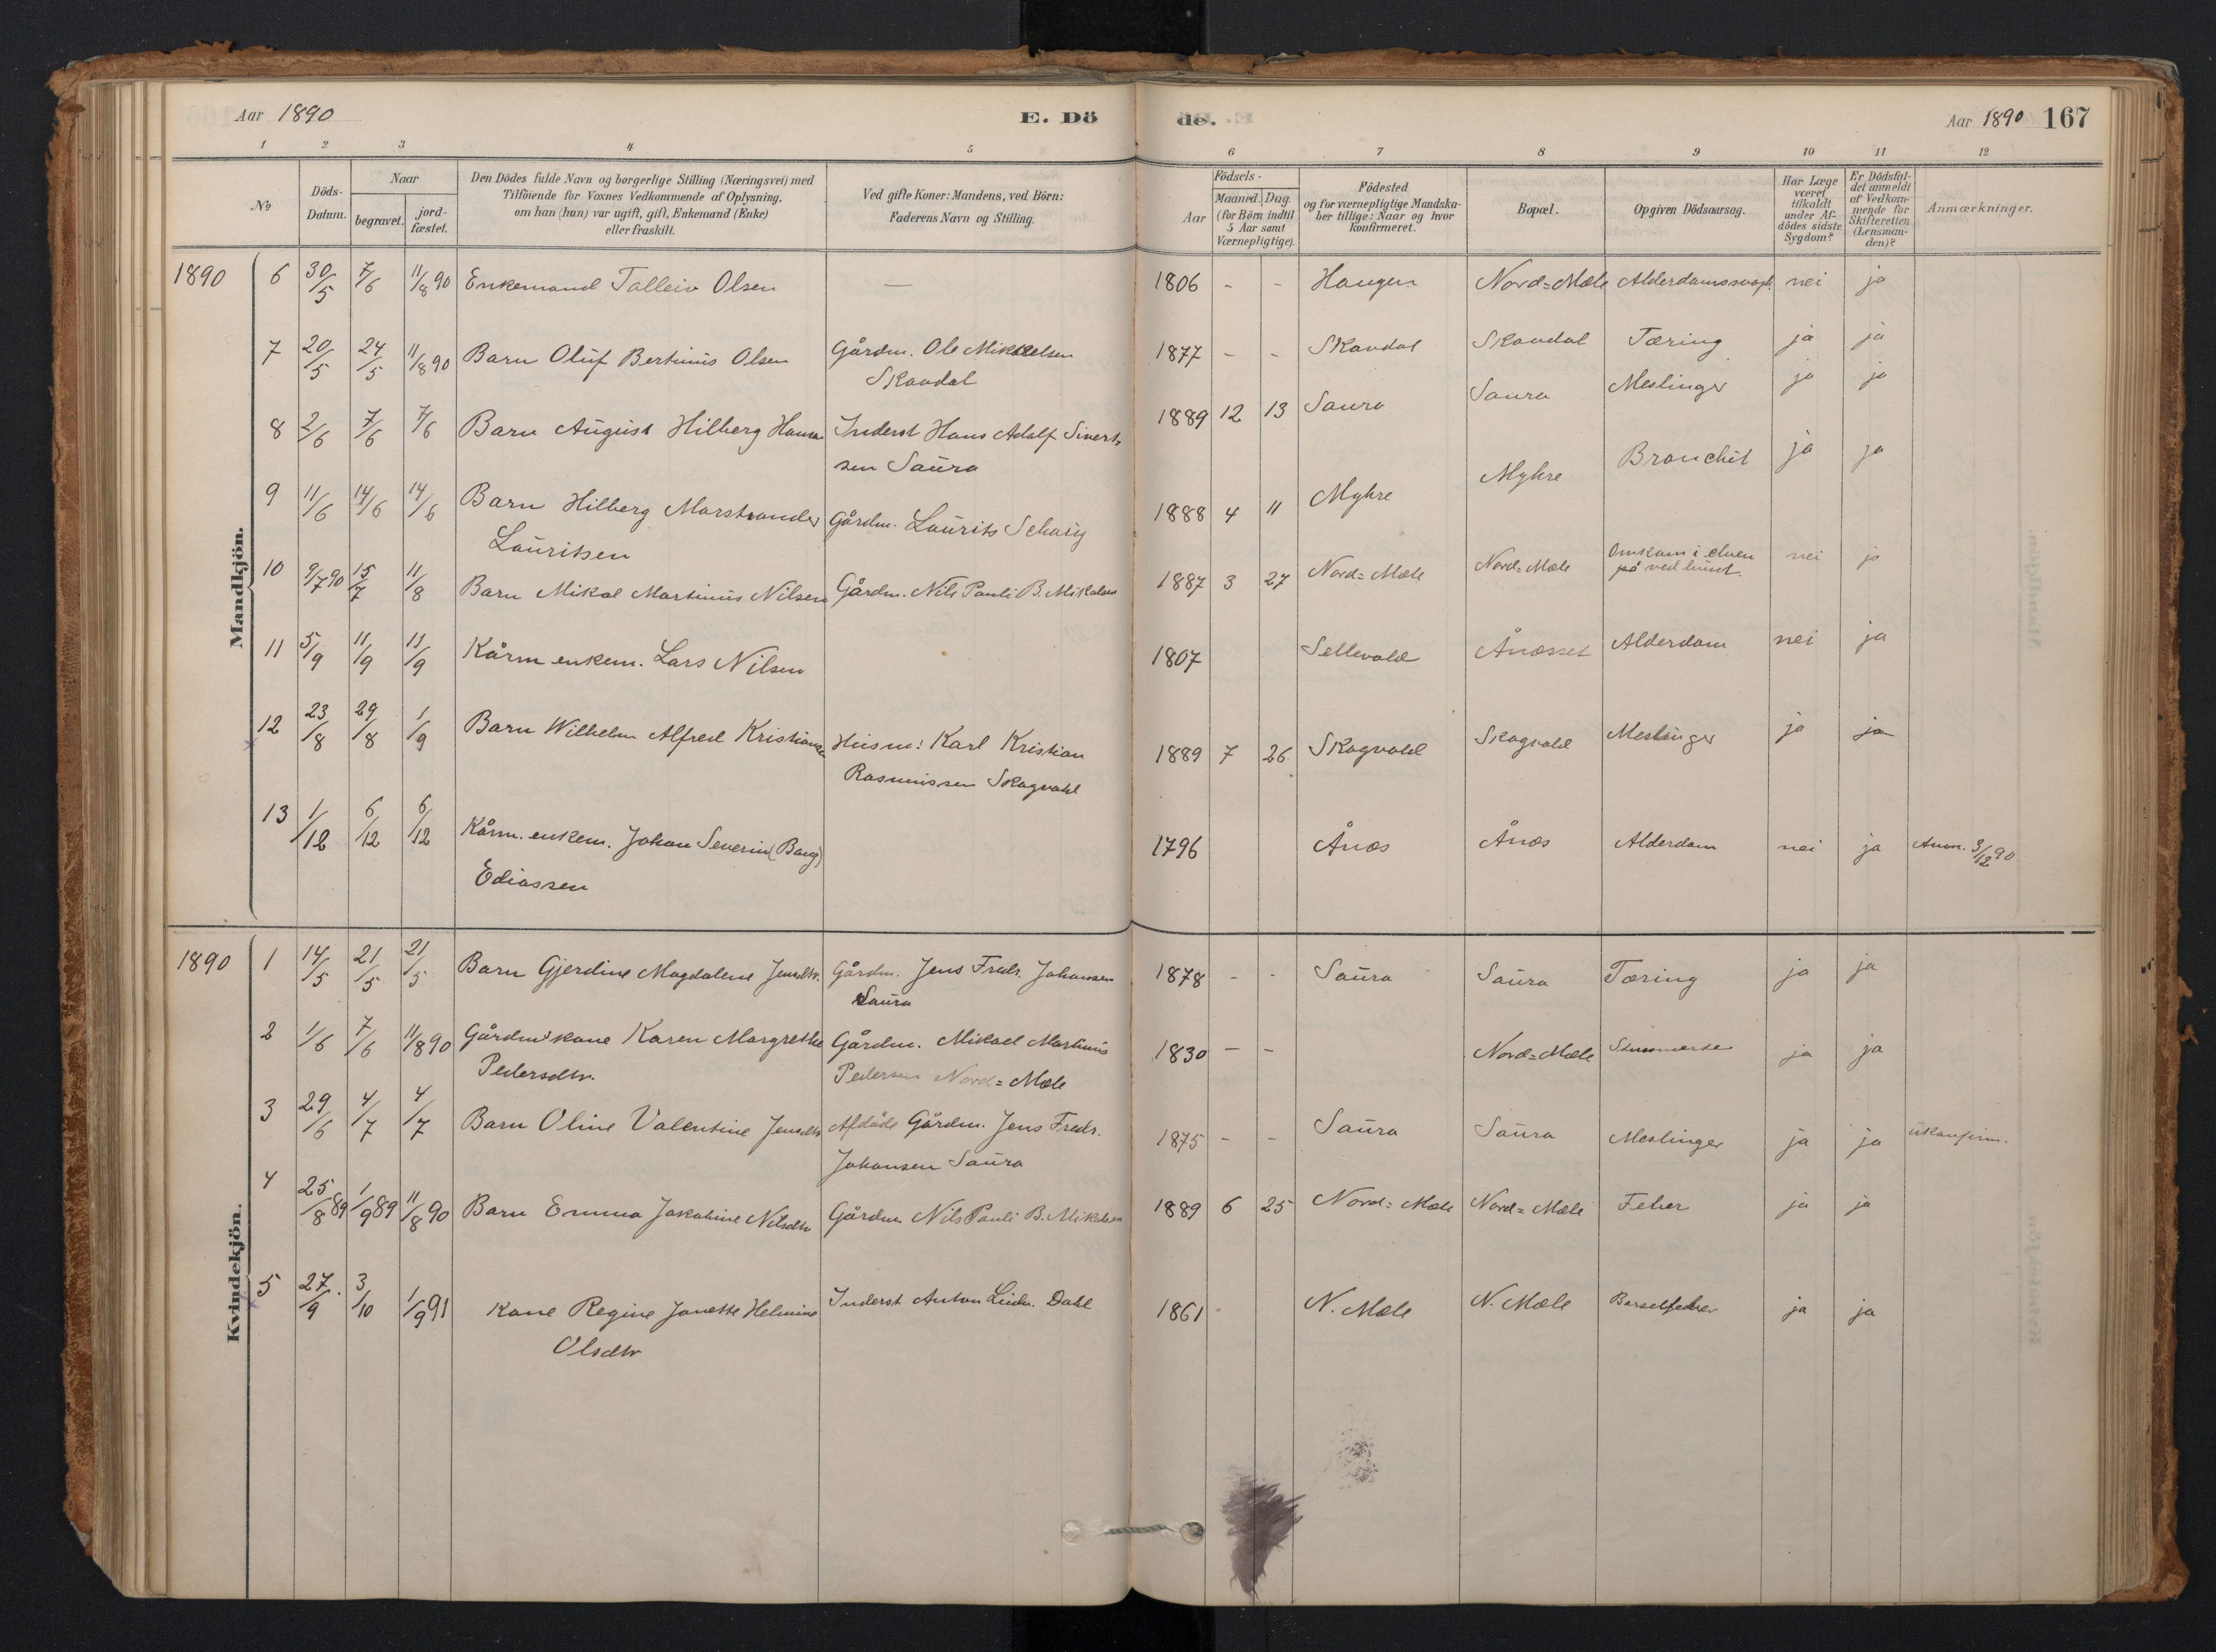 Aar 1890
E. Dö
de.
Aar 1890 167
1 2 3 4 5 6 7 8 9 10 11 12
№
Döds-Datum.
Naar
begravet.
jord-fæstet.
Den Dödes fulde Navn og borgerlige Stilling (Næringsvei) med
Tilföiende for Voxnes Vedkommende af Oplysning,
om han (hun) var ugift, gift, Enkemand (Enke)
eller fraskilt.
Ved gifte Koner: Mandens, ved Börn:
Faderens Navn og Stilling.
Födsels-
Aar
Maaned. Dag.
(for Börn indtil
5 Aar samt
Værnepligtige).
Födested
og for værnepligtige Mandska-
ber tillige: Naar og hvor
konfirmeret.
Bopæl.
Opgiven Dödsaarsag.
Har Læge
været
tilkaldt
under Af-
dödes sidste
Sygdom?
Er Dödsfal-
det anmeldt
af Vedkom-
mende for
Skifteretten
(Lensman-
den)?
Anmærkninger.
Mandkjön.
1890 6 30/5 7/6 11/8 90 Enkemand Talleiv Olsen — 1806 - - Haugen Nord=Mæle nei ja
7 20/5 24/5 11/8 90 Barn Oluf Bertinus Olsen Gårdm. Ole Mikkelsen 1877 - - Skavdal Skavdal Tæring ja ja
Skavdal
8 2/6 7/6 7/6 Barn August Hilberg Hansen Inderst Hans Adolf Siverts 1889 12 13 Saura Saura Meslinger ja ja
sen Saura
9 11/6 14/6 14/6 Barn Hilberg Marstrander Gårdm. Laurits Schøig 1888 4 11 Myhre Myhre Bronchit ja ja
Lauritsen
10 9/7 90 15/7 11/8 Barn Mikal Martinus Nilsen Gårdm. Nils Pauli B. Mikalsen 1887 3 27 Nord=Mæle Nord=Mæle Omkom i elven nei ja
på ved huset.
11 5/9 11/9 11/9 Kårm enkem. Lars Nilsen 1807 Sellevold Ånæsset Alderdom nei ja
12 23/8 29/8 1/9 Barn Wilhelm Alfred Kristiansen Husm: Karl Kristian 1889 7 26 Skogvold Skogvold Meslinger ja ja
Rasmussen Skogvold
13 1/12 6/12 6/12 Kårm. enkem. Johan Severin (Bang) 1796 Ånæs Ånæs Alderdom nei ja Anm. 3/12 90
Ediassen
Kvindekjön.
1890 1 14/5 21/5 21/5 Barn Gjerdine Magdalene Jensdtr. Gårdm. Jens Fredr. Johansen 1878 - - Saura Saura Tæring ja ja
Saura
2 1/6 7/6 11/8 90 Gårdmskone Karen Margrethe Gårdm. Mikael Martinus 1830 - - Nord=Mæle ja ja
Pedersdtr. Pedersen Nord=Mæle
3 29/6 4/7 4/7 Barn Oline Valentine Jensdtr Afdøde Gårdm. Jens Fredr. 1875 - - Saura Saura Meslinger ja ja ukonfirm.
Johansen Saura
4 25/8 89 1/9 89 11/8 90 Barn Emma Jakobine Nilsdtr Gårdm Nils Pauli B. Mikalsen 1889 6 25 Nord=Mæle Nord=Mæle Feber ja ja
5 27/9 3/10 1/9 91 Kone Regine Janette Helmine Inderst Anton Dahl 1861 N. Mæle N. Mæle Barselfeber ja ja
Olsdtr